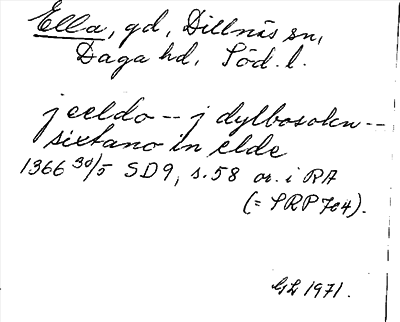 Ella, gd, Dillnäs sn,
Daga hd, Söd. l.
j eeldo -- j dylbosokn --
sixtano in elde
1366 30/5 SD9, s. 58 or. i RA
(= SRP 704).
GL 1971.